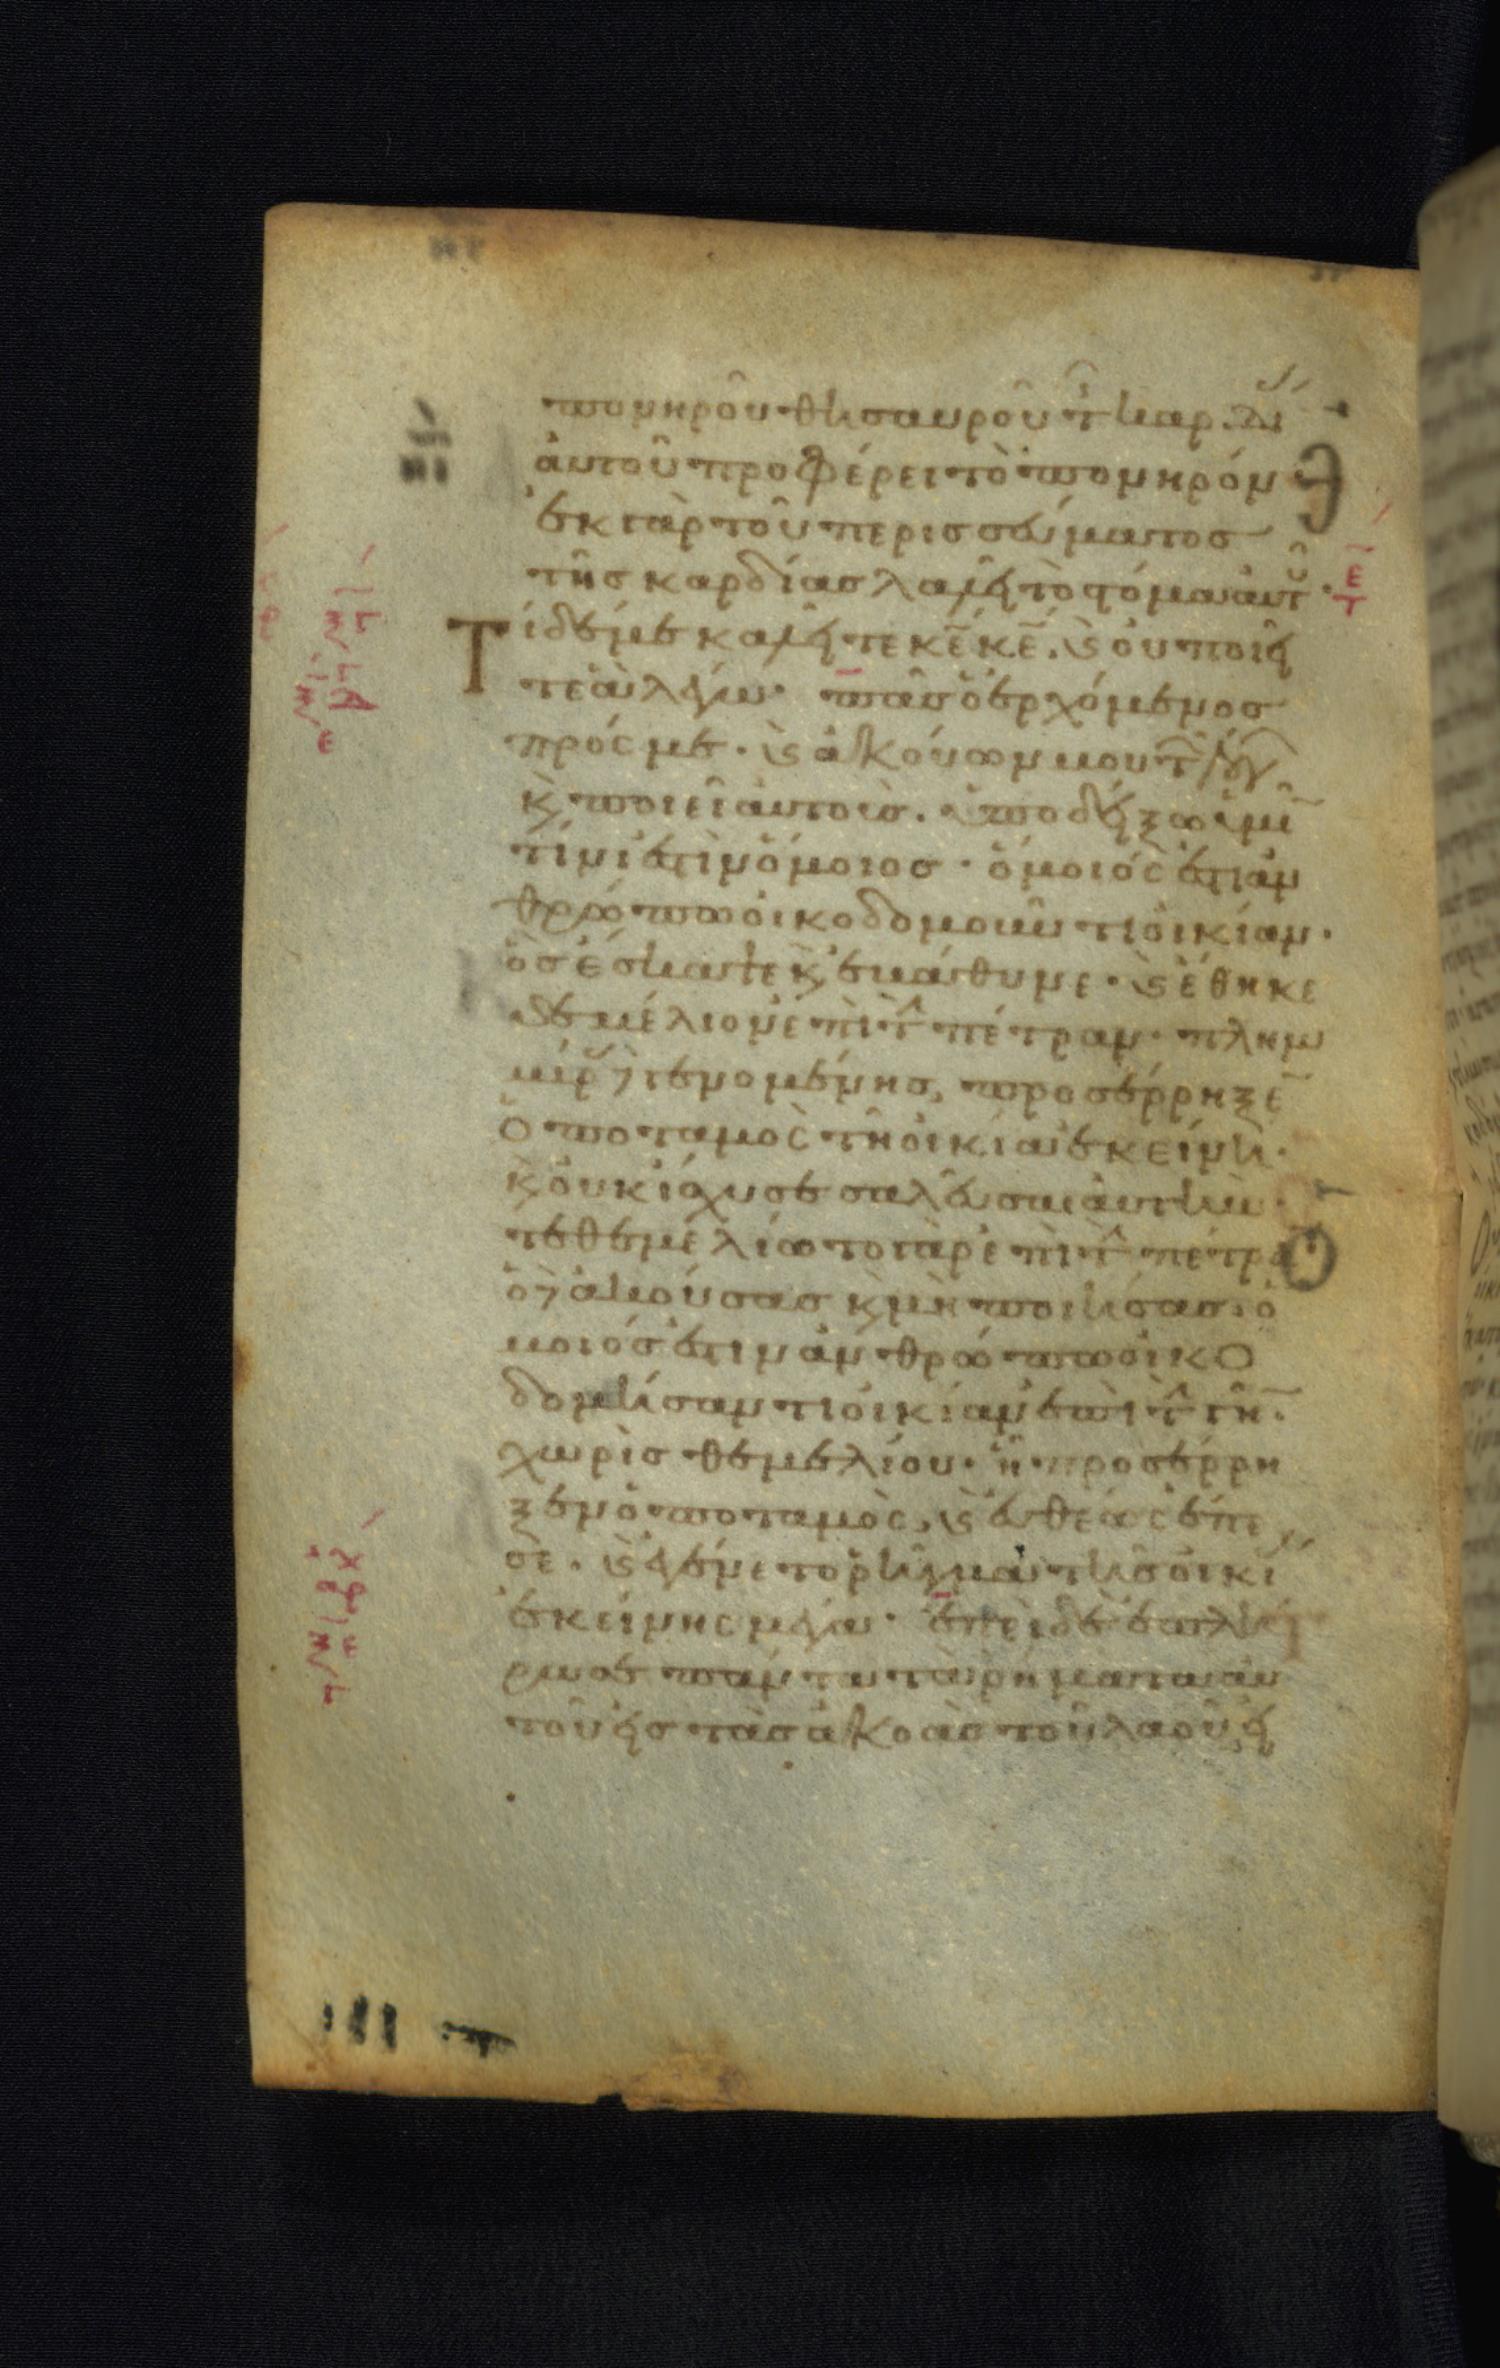 πονηροῦ θησαυροῦ τ῀ καρδί
αὐτοῦ προφέρει τὸ πονηρόν
ἐκ γὰρ τοῦ περισσεύματος
τῆς καρδίας λαλεῖ τὸ στόμα αὐτοῦ·
Τί δέ με καλεῖτε κε̄ κε̄. καὶ οὐ ποιεῖ
τε ἃ λέγω· πᾶς ὁ ἐρχόμενος
πρός με· καὶ ἀκούων μου τ῀ λόγ
κ̀ ποιεῖ αὐτοὺς. ὑποδείξω ὑμῖ
τίνι ἐστὶν ὅμοιος· ὅμοιός ἐστιν ἀν
θρώπω οἰκοδομοῦντι οἰκίαν·
ὃς ἔσκαψε κ̀ ἐβάθυνε· καὶ ἔθηκε
θεμέλιον ἐπὶ τ̀ πέτραν· πλημ
μύρ δὲ γενομένης, προσέρρηξε
ὁ ποταμὸς τῆ οἰκία ἐκείνη·
κ̀ οὐκ ἴσχυσε σαλεῦσαι αὐτὴν·
τεθεμελίωτο γὰρ ἐπὶ τ̀ πέτρα
ὁ δὲ ἀκούσας κ̀ μὴ ποιήσας· ὅ
μοιός ἐστιν ἀνθρώπω οἰκο
δομήσαντι οἰκίαν ἐπὶ τ̀ γῆ·
χωρὶς θεμελίου· ἧ προσέρρη
ξεν ὁ ποταμὸς, καὶ εὐθέως ἔπε
σε· καὶ ἐγένετο ῥῆγμα τῆς οἰκί
ἐκείνης μέγα· ἐπεὶ δὲ ἐπλή
ρωσε πάντα τὰ ῥήματα αὐ
τοῦ εἰς τὰς ἀκοὰς τοῦ λαοῦ, εἰ